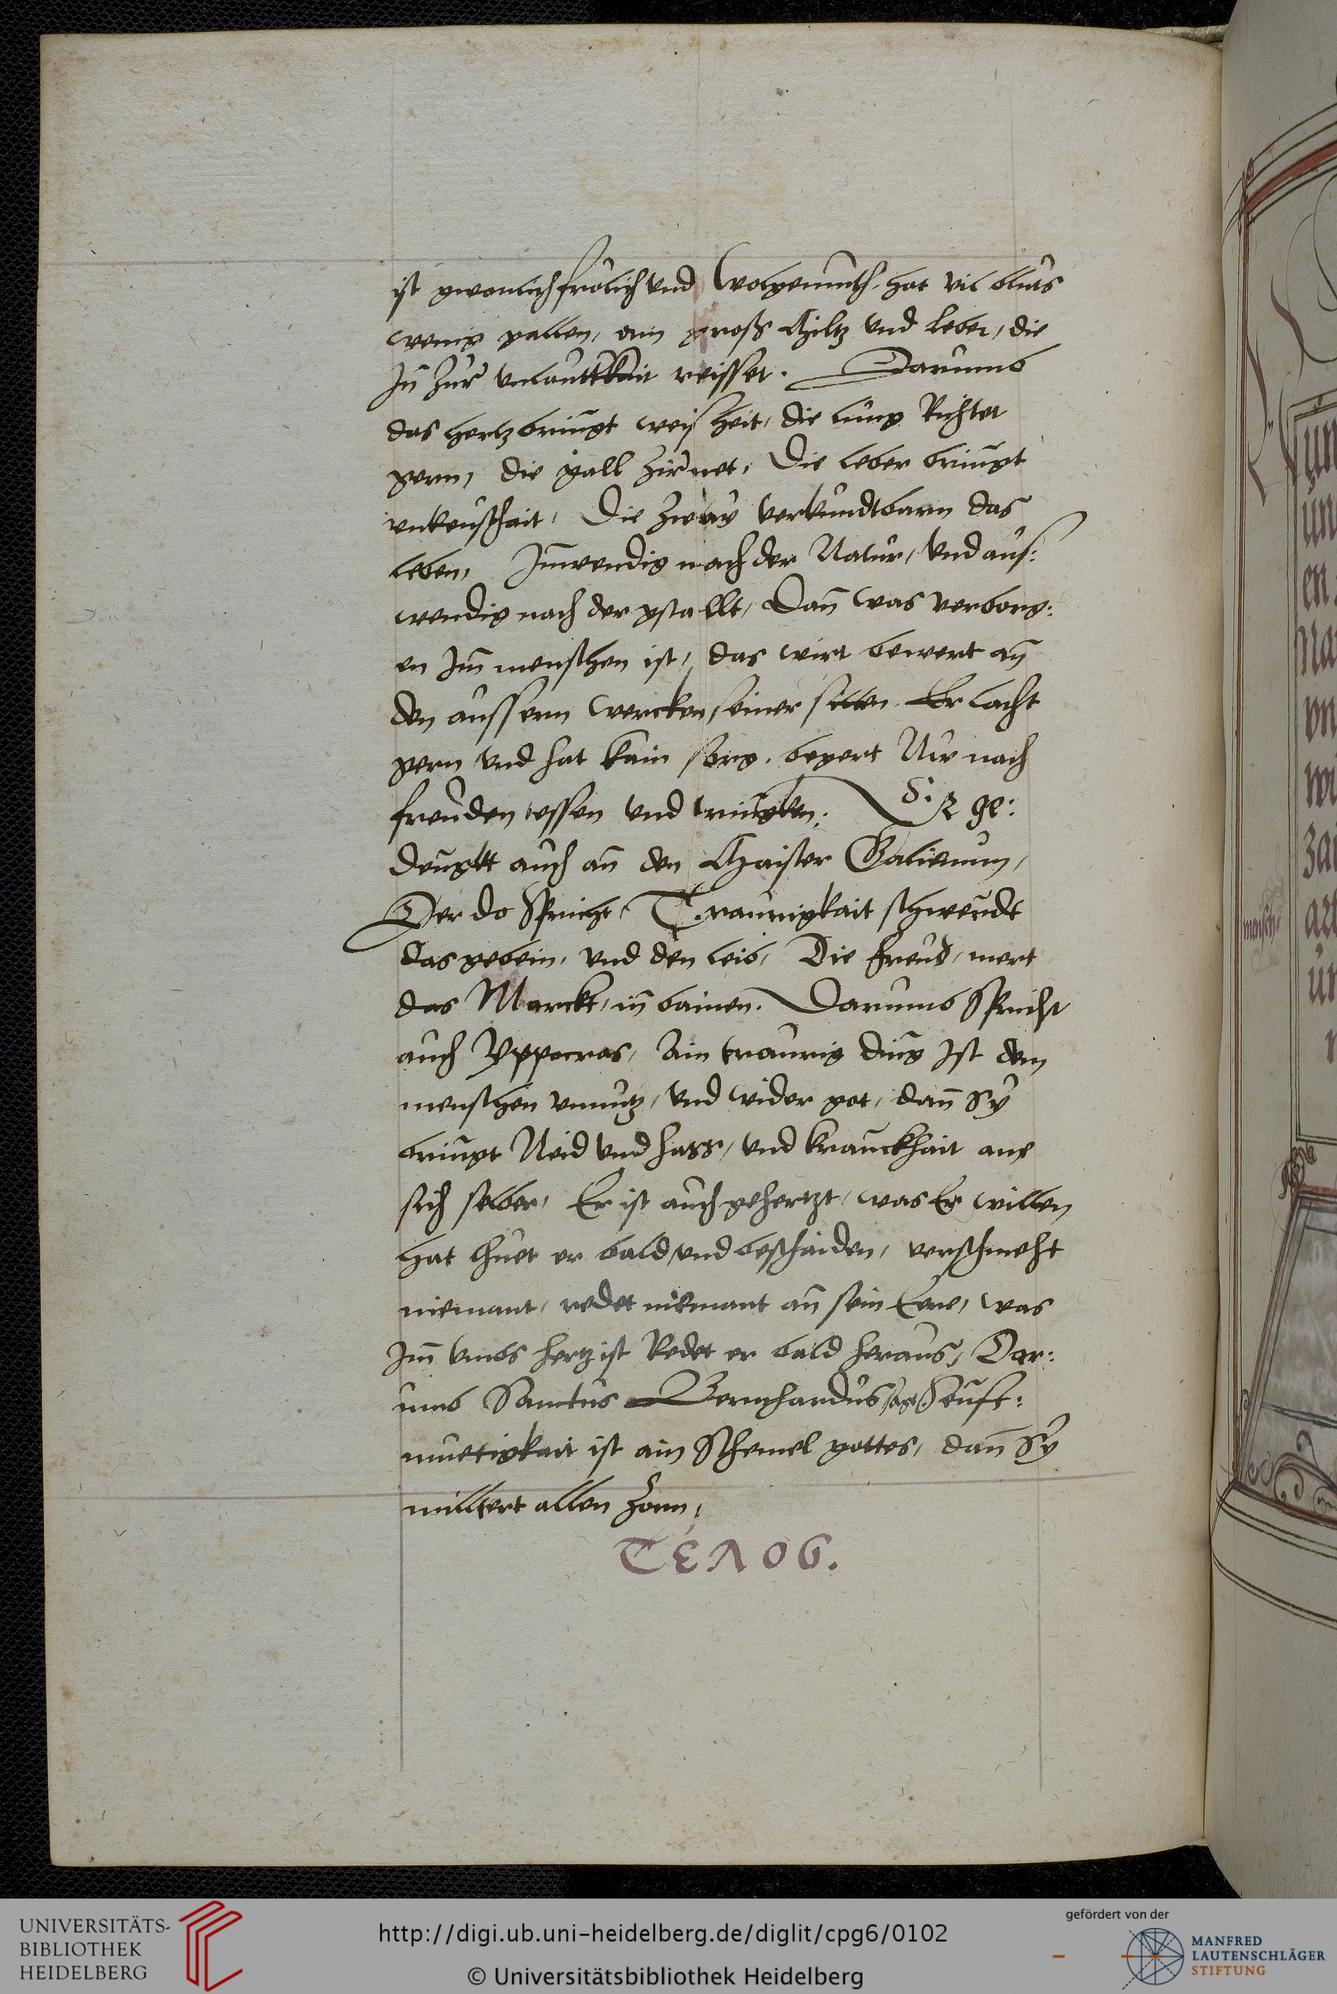 ist gwonlich frölich vnd Wolgemuth. hat vil bluts
wenig gallen, ain groß Miltz vnd leber, die
In zur vnlautkait reisset. Darumb
das hertz bringt weisheit, die lung Richtet
gern, die gall zürnet, Die leber bringt
vnkeuschait, Die zway verkundtbarn das
leben, Inwendig nach der Natur, vnd aus:
wendig nach der gstallt, Dan was verborg:
en Im menschen ist, das wirt bewert an
den aussern wercken, seiner sitten. Er lacht
gern vnd hat kain sorg. begert Nur nach
freuden, essen vnd tringken.
auch an den Maister Galienum,
Der do Spricht, Traurigkait schwendt
das gebein, vnd den leib, Die freud, mert
das Marckt, in bainen. Darumb Spricht
auch Yppocras, Ain traurig ding Ist dem
menschen vnnutz, vnd wider got, dan Sy
bringt Neid vnd hass, vnd kranckhait ane
sich selber, Er ist auch gehertzt, was Er willen
hat thuet er bald, vnd beschaiden, verschmeht
niemant, redet niemant an sein Eere, was
Im vmbs hertz ist Redet er bald heraus, Dar:
umb Sanctus Bernhardus sagt, Senft:
muetigkait ist ain Schemel gottes, dan Sy
milltert allen Zorn,
Τέλος.
mensch
UNIVERSITÄTS-
BIBLIOTHEK
HEIDELBERG
http://digi.ub.uni-heidelberg.de/diglit/cpg6/0102
© Universitätsbibliothek Heidelberg
gefördert von der
MANFRED
LAUTENSCHLÄGER
STIFTUNG